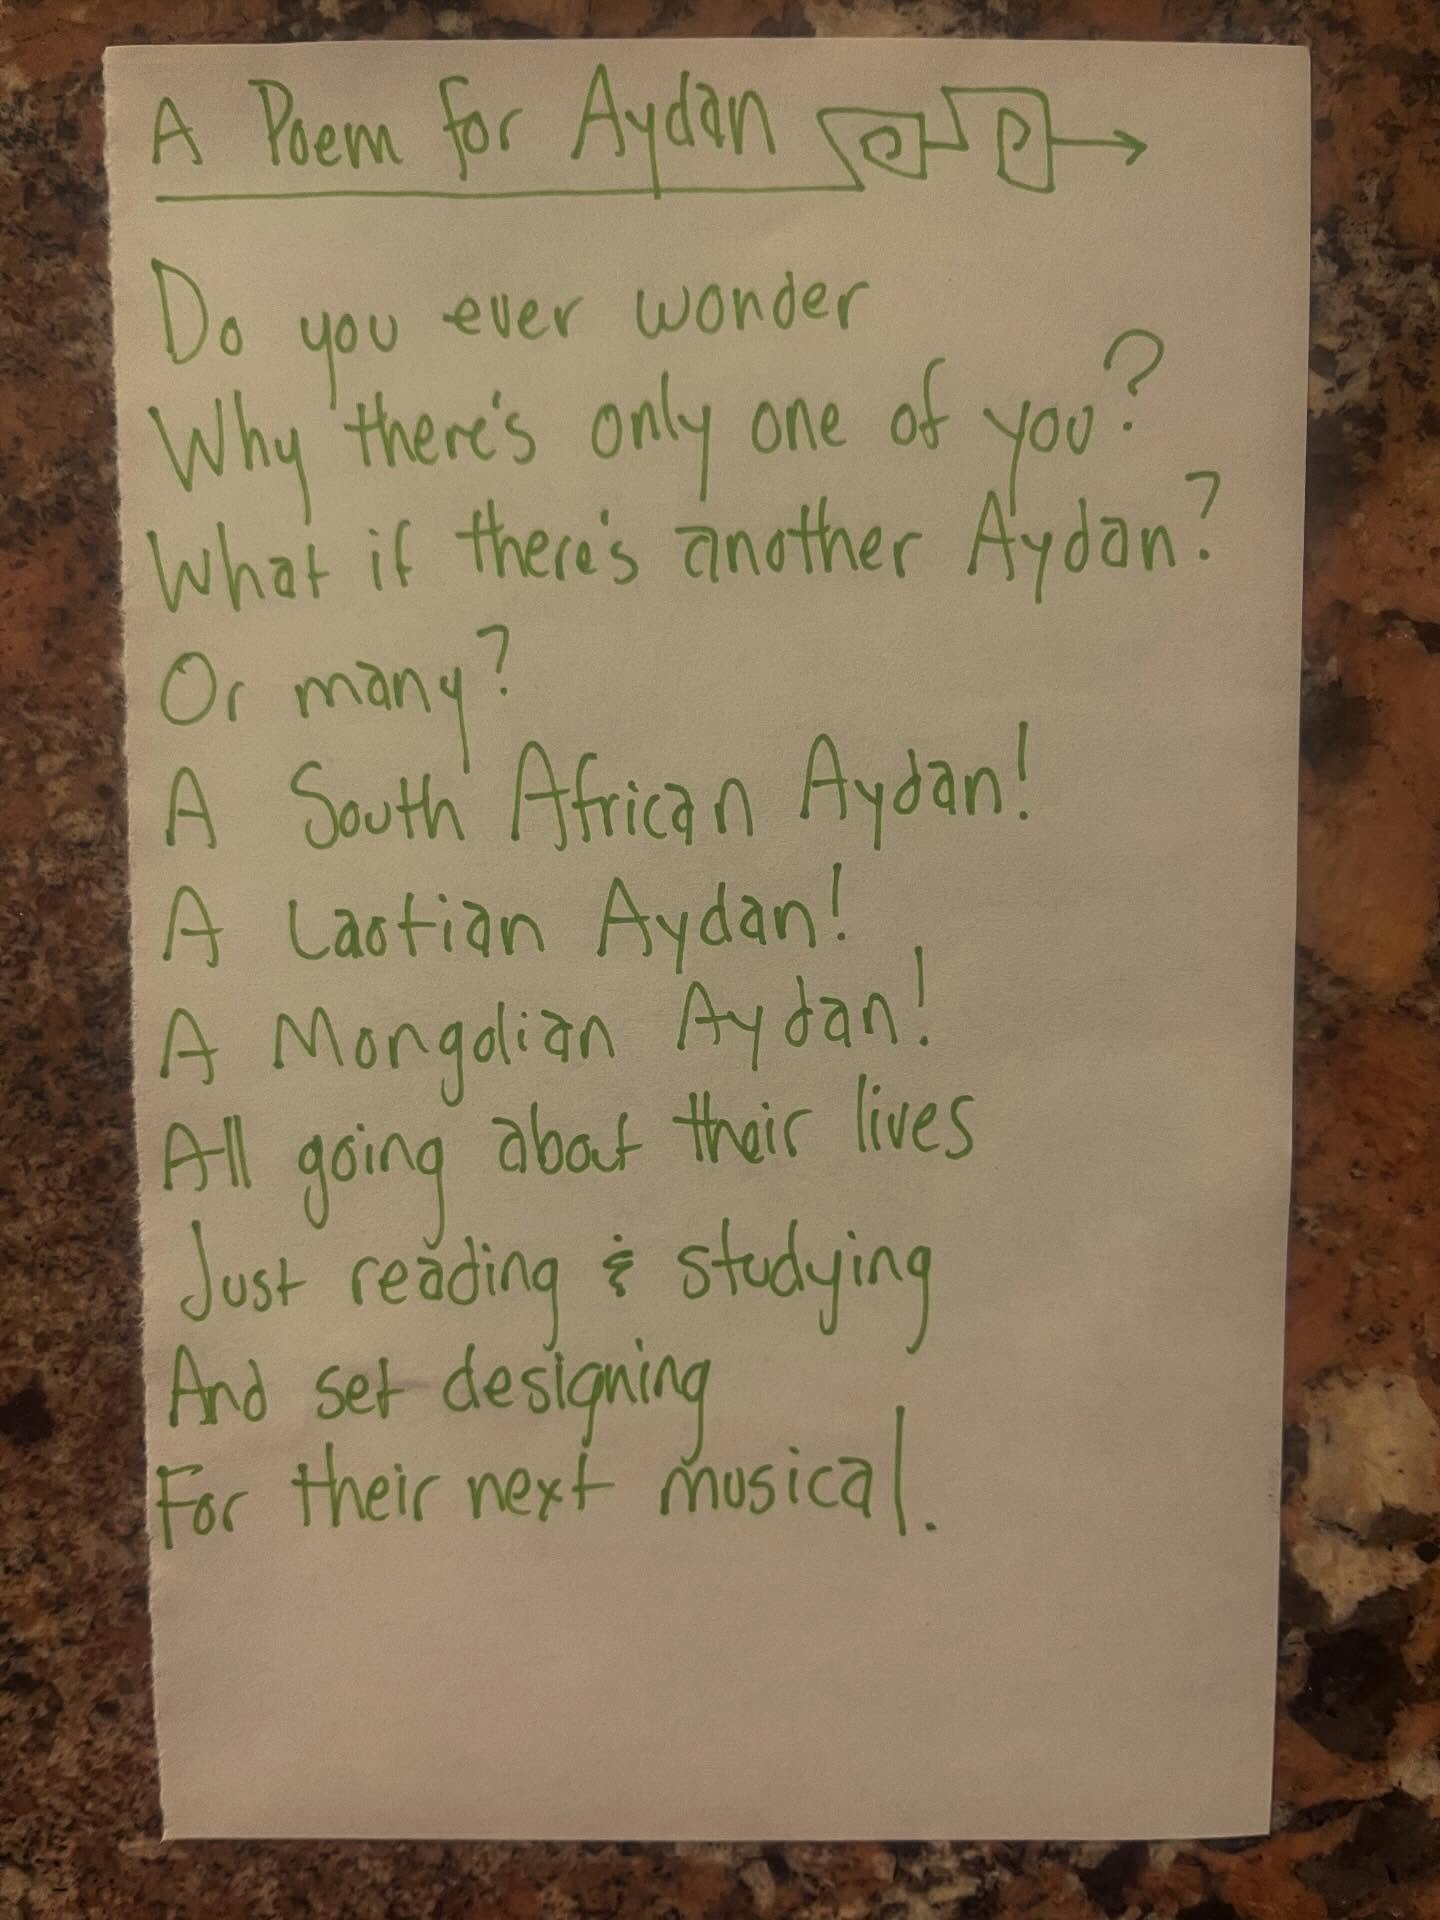 A Poem for Aydan
Do you ever wonder
Why there's only one of you?
What if there's another Aydan?
Or many?
A South African Aydan!
A Laotian Aydan!
A Mongolian Aydan!
All going about their lives
Just reading & studying
And set designing
For their next musical.